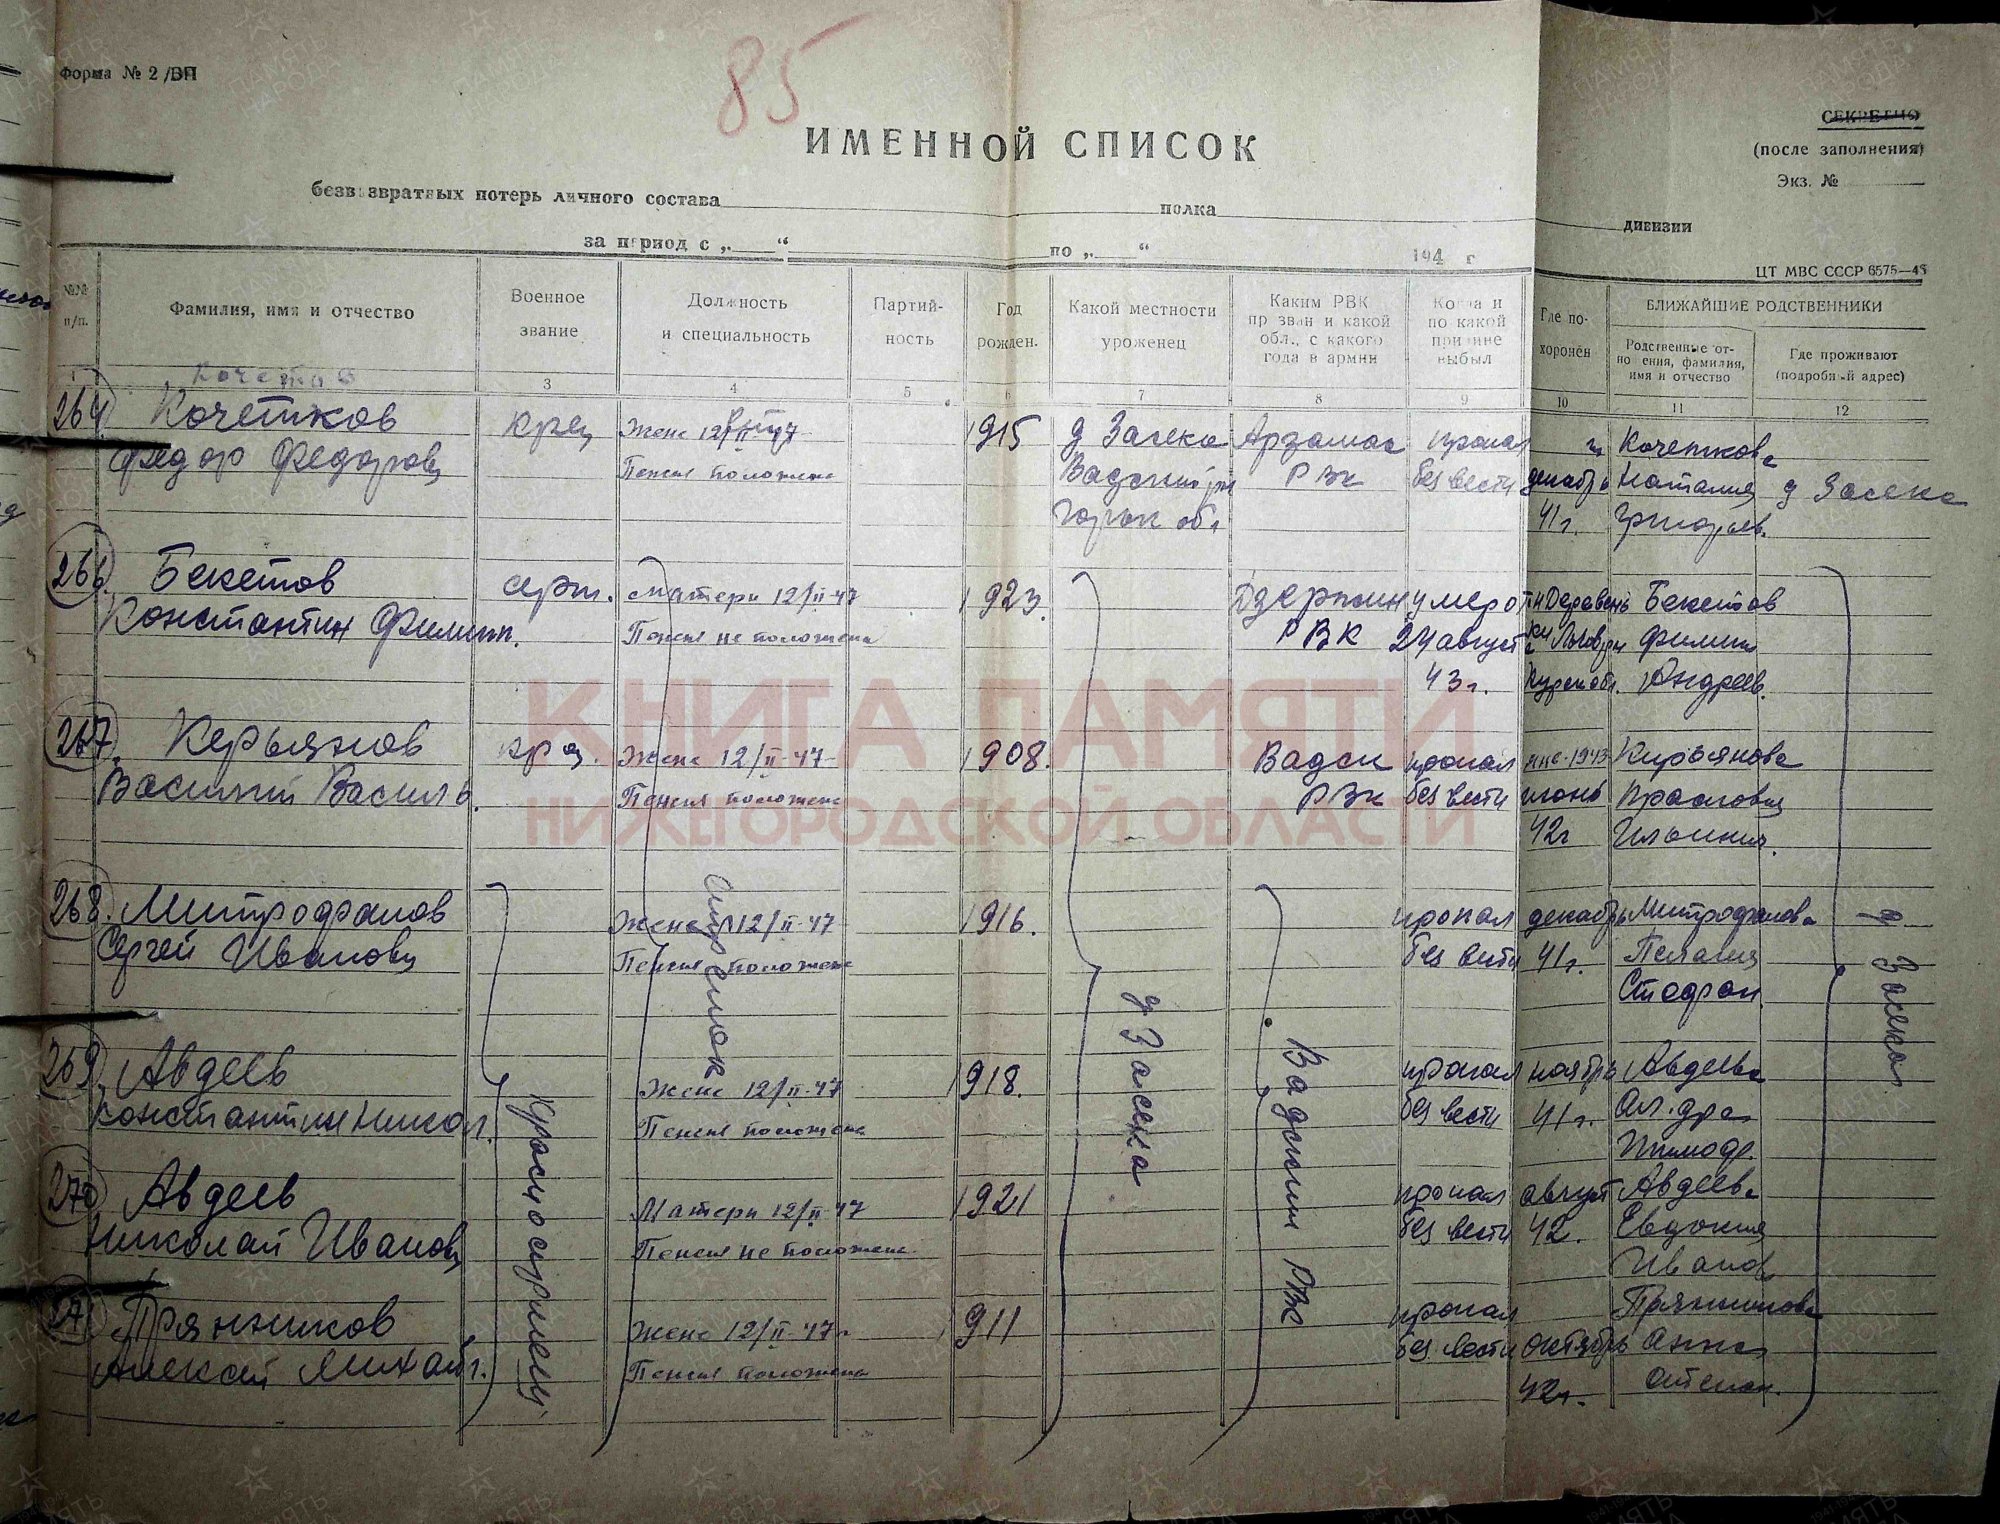 85
Форма № 2 /ВП
СЕКРЕТНО
(после заполнения)
Экз. №
ИМЕННОЙ СПИСОК
безвозвратных потерь личного состава полка дивизии
за период с „ “ по „ “ 194 г
ЦТ МВС СССР 6575—45
№№ п/п.
Фамилия, имя и отчество
Военное звание
Должность и специальность
Партийность
Год рожден.
Какой местности уроженец
Каким РВК призван и какой обл., с какого года в армии
Когда и по какой причине выбыл
Где похоронен
БЛИЖАЙШИЕ РОДСТВЕННИКИ
Родственные отношения, фамилия, имя и отчество
Где проживают (подробный адрес)
3 4 5 6 7 8 9 10 11 12
264 Кочетков крец Жене 12/II-47 1915 д Засека Арзамас пропал Кочеткова
Федор Федоров Пенсия положена Вадский РВк без вести декабрь Наталия д Засека
Горьк обл 41г. Григорьев.
266. Бекетов серж. Матери 12/II-47 1923. Дзержин умер от Бекетов
Константин Филипп. Пенсия не положена РВК 24 август Филипп
43г. Курск обл. Андреев.
267. Керьянов кр-ц. Жене 12/II-47 1908. Вадск пропал 1943 Кирьянова
Василий Василь. Пенсия положена РВк без вести июнь Прасковья
42г Ильинич.
268. Митрофанов Жене 12/II-47 1916. пропал декабрь Митрофанова
Сергей Иванович Пенсия положена без вести 41г. Пелагия
269. Авдеев Жене 12/II-47 1918. пропал ноябрь Авдеева
Константин Никол. Пенсия положена без вести 41г. Ал-дра
270 Авдеев Матери 12/II-47 1921 пропал август Авдеева
Николай Иванов Пенсия не положена без вести 42. Евдокия
Иванов
271 Прянников Жене 12/II-47г 1911 пропал Прянникова
Алексей Михайл. Пенсия положена без вести октябрь Анна
42г. Степан.
Красноармеец.
стрелок
д Засека
Вадским РВк
д. Засека.
КНИГА ПАМЯТИ
НИЖЕГОРОДСКОЙ ОБЛАСТИ
ПАМЯТЬ НАРОДА